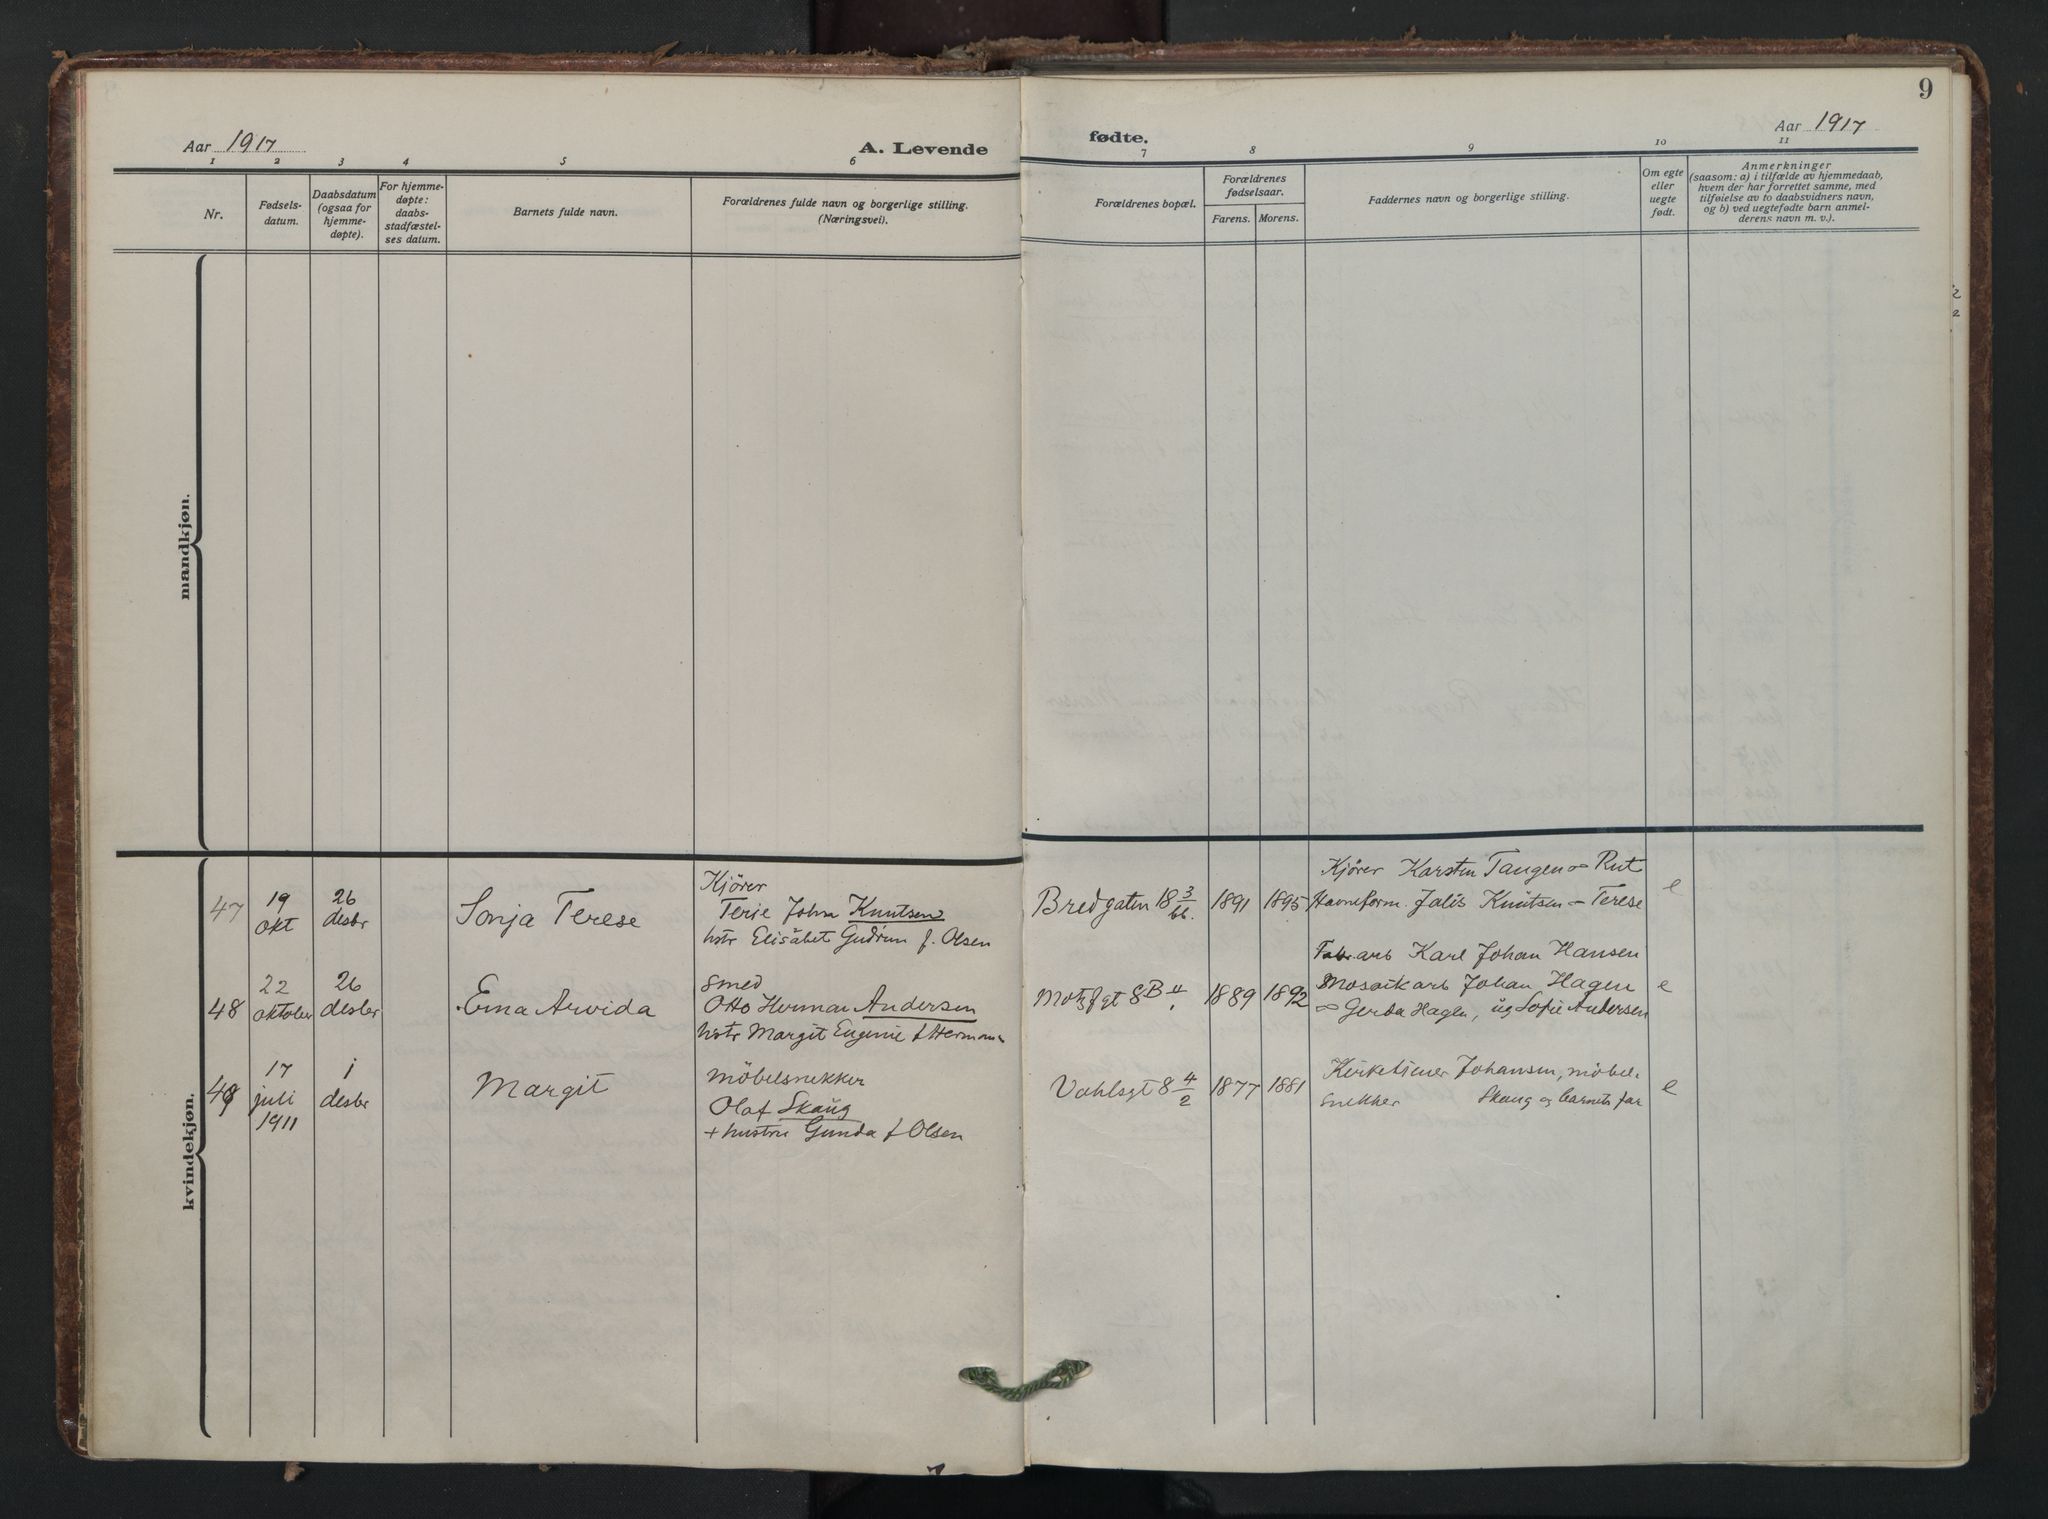 9
Aar 1917
A. Levende
fødte.
Aar 1917
1 2 3 4 5 6 7 8 9 10 11
Nr.
Fødsels-
datum.
Daabsdatum
(ogsaa for
hjemme-
døpte).
For hjemme-
døpte:
daabs-
stadfæstel-
ses datum.
Barnets fulde navn.
Forældrenes fulde navn og borgerlige stilling.
(Næringsvei).
Forældrenes bopæl.
Forældrenes
fødselsaar.
Farens. Morens.
Faddernes navn og borgerlige stilling.
Om egte
eller
uegte
født.
Anmerkninger
(saasom: a) i tilfælde av hjemmedaab,
hvem der har forrettet samme, med
tilføielse av to daabsvidners navn,
og b) ved uegtefødte barn anmel-
derens navn m. v.).
mandkjøn.
kvindekjøn.
47
19
okt
26
desbr
Sonja Terese
Kjörer
Terje John Knutsen
hstr Elisabet Gudrun f. Olsen
Bredgaten 18 3/bb.
1891
1895
Kjörer Karsten Tangen Rut
Havneform. Knutsen – Terese
e
48
22
oktober
26
desbr
Erna Arvida
Smed
Otto Herman Andersen
hstr Margit Eugenie f Herman
Motzfgt 8B
1889
1892
Fabr.arb Karl Johan Hansen
Mosaikarb Johan Hagen
Gerda Hagen, ug Sofie Andersen
e
49
17
juli
1911
1
desbr
Margit
Möbelsnekker
Olaf Skaug
+ hustru Gunda f Olsen
Vahlsgt 8 4/2
1877
1881
Kirketjener Johansen, möbel-
snekker Skaug og barnets far
e